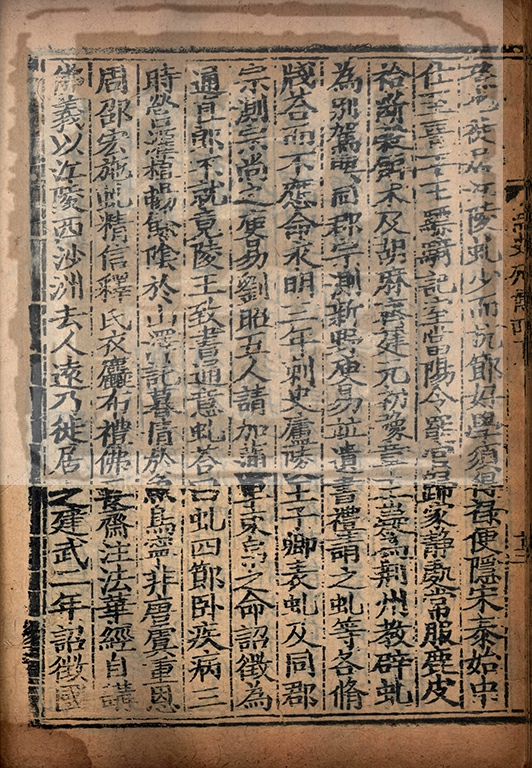 徙居江陵虬少而抗節好學須得祿便隱宋泰始中
仕至晉平王驃騎記室當陽令罷官歸家靜處常服鹿皮
袷斷穀餌术及胡麻齋建元初豫章王嶷為荆州教辟虬
為別駕與同郡宗測新野庾易並遺書禮請之虬等各脩
牋荅而不應命永明三年刺史廬陵王子卿表虬及同郡
宗測宗尚之庾易劉昭五人請加蒲車束帛之命詔徵為
通直郎不就竟陵王致書通意虬荅曰虬四節卧疾病三
時營灌植暢餘陰於山澤託暮情於魚鳥寧非唐虞重恩
周邵宏施虬精信釋氏衣麤布禮佛長齋注法華經自講
佛義以江陵西沙洲去人遠乃徙居之建武二年詔徵國